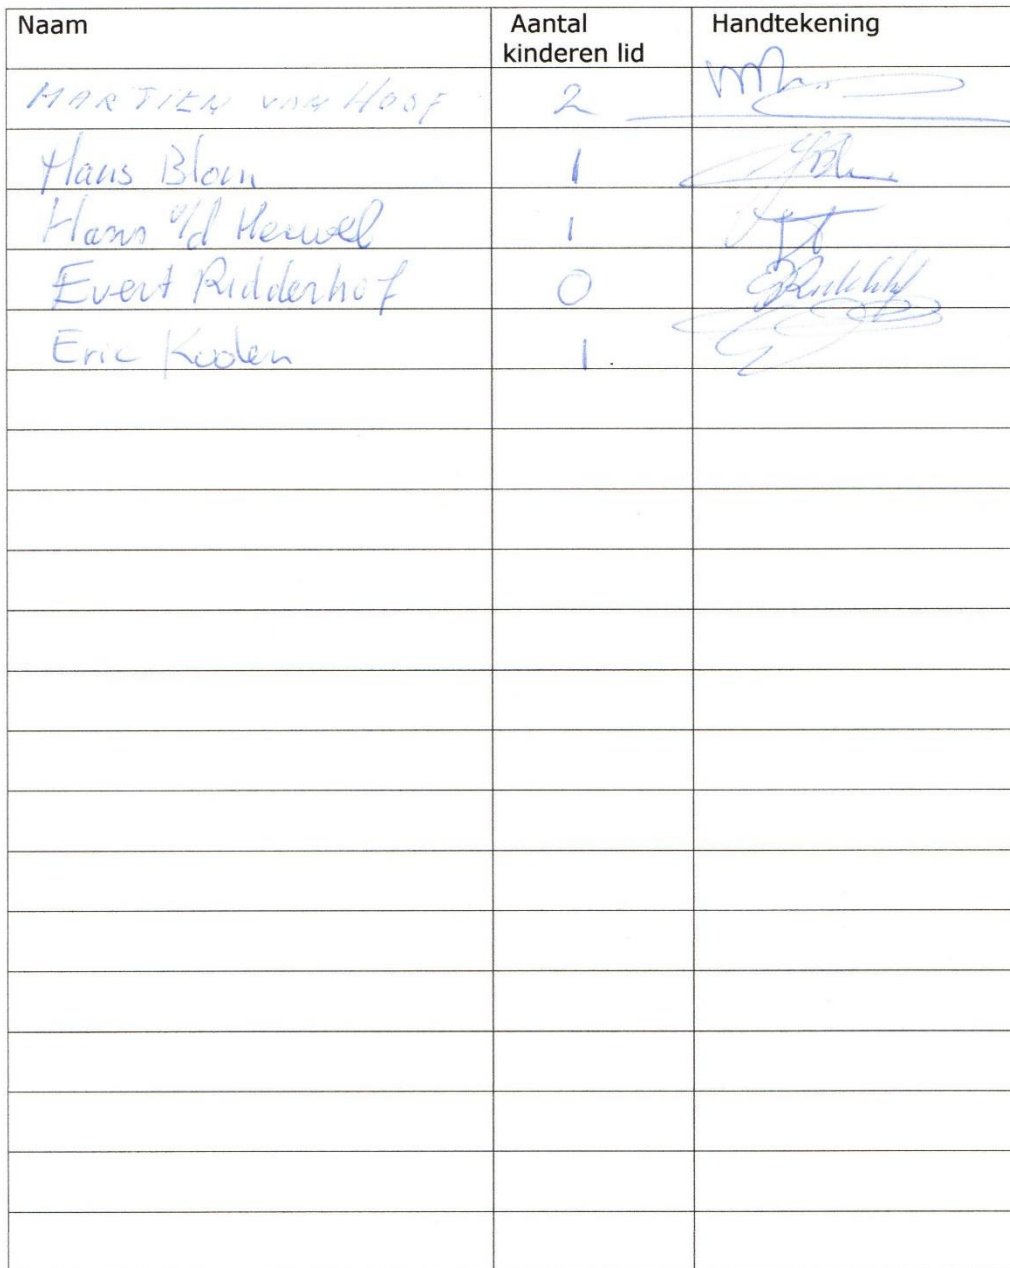 Naam Aantal kinderen lid Handtekening
MARTIEN VAN HOOF 2
Hans Blom 1
Hans v/d Heuvel 1
Evert Ridderhof 0
Eric Koolen 1